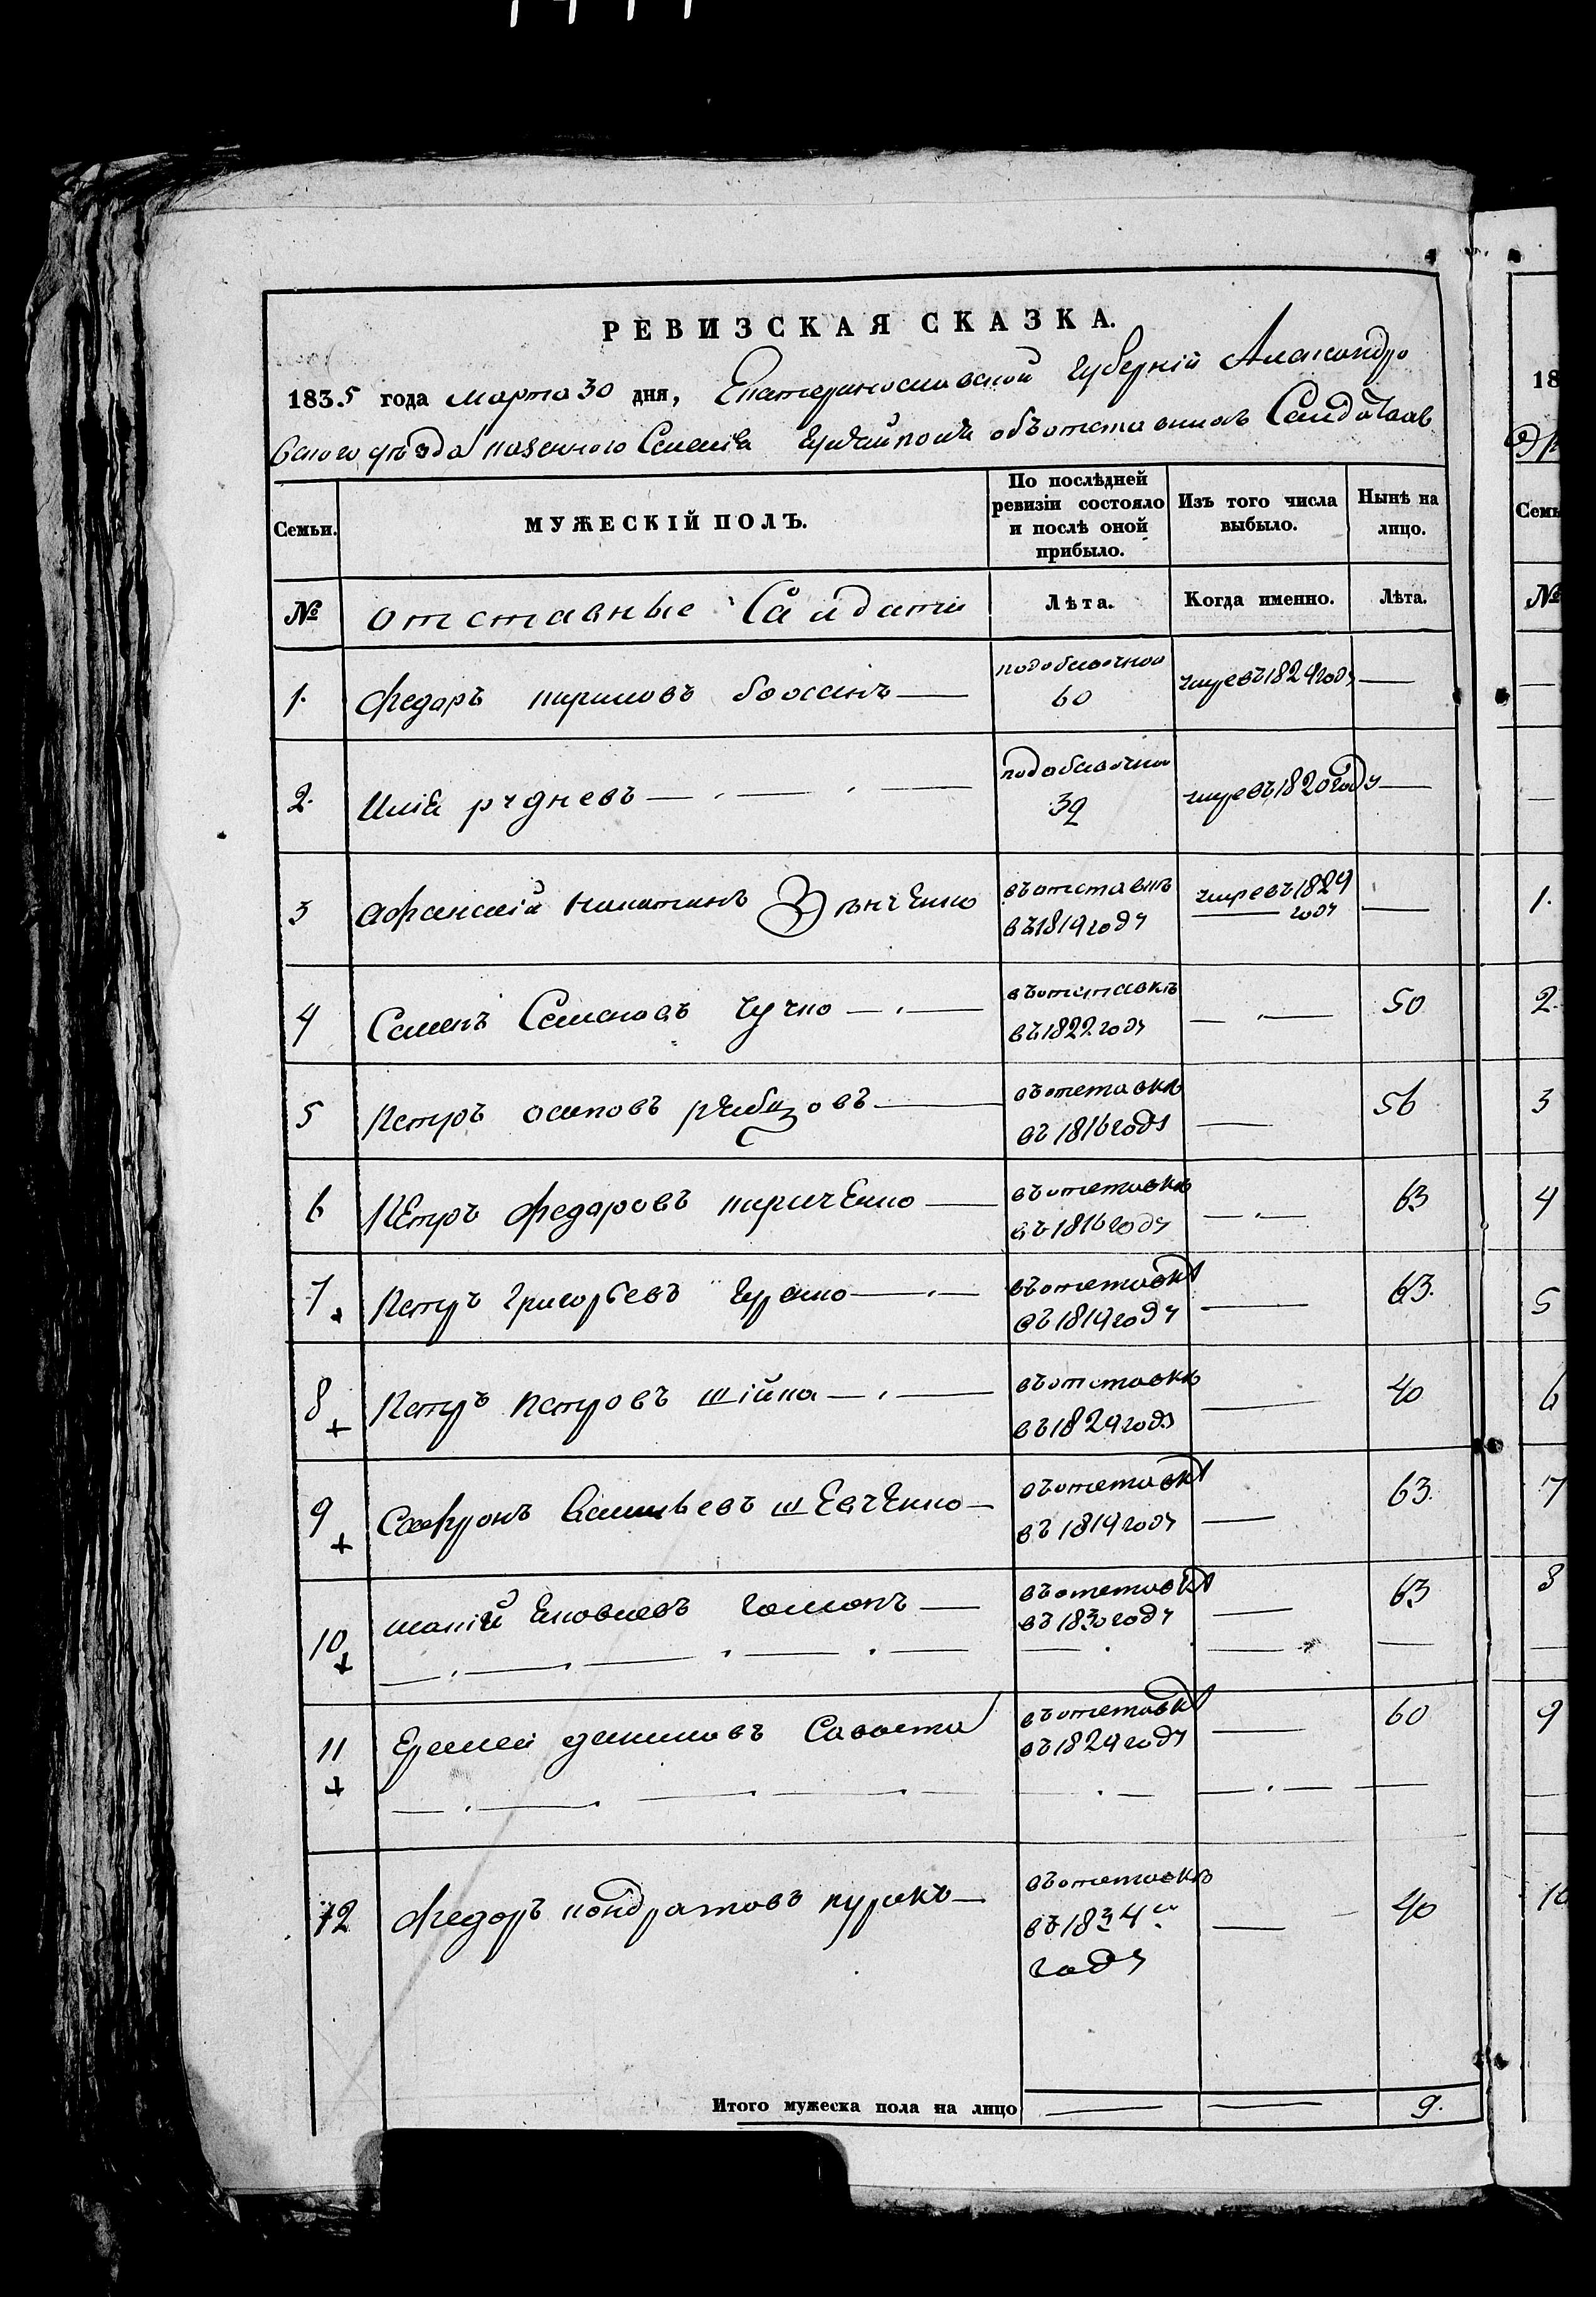 РЕВИЗСКАЯ СКАЗКА.
1835 года марта 30 дня, Екатеринославской губерніи Александро
вского уѣзда казенного Селенія объ отставныхъ Салдатахъ
Семьи.
МУЖЕСКІЙ ПОЛЪ.
По послѣдней ревизіи состояло и послѣ оной прибыло.
Изъ того числа выбыло.
Нынѣ на лицо.
№ отставные Салдати Лѣта. Когда именно. Лѣта.
1. Федоръ кириловъ 60 умре въ 1824 году —
2. Илія рудневъ — умре въ 1820 году —
3 афанасій въ отставкѣ въ 1819 году умре въ 1829 году —
4 Семенъ Семеновъ въ отставкѣ въ 1822 году — 50
5 Петръ осиповъ въ отставкѣ въ 1816 году — 56
6 Петръ федоровъ кириченко — въ отставкѣ въ 1816 году — 63
7. Петръ григорьевъ въ отставкѣ въ 1819 году — 63.
8 + Петръ Петровъ шійка — въ отставкѣ въ 1829 году — 40
9 + Сафронъ Васильевъ шевченко — въ отставкѣ въ 1819 году — 63.
10 + Яковлевъ въ отставкѣ въ 1830 году — 63
11 + Еремей даниловъ Савоста въ отставкѣ въ 1829 году — 60
12 федоръ кондратовъ въ отставкѣ въ 1834 м году — 40
Итого мужеска пола на лицо — — 9.
18
Семь
№
1.
2.
3
4
5
6
7
8
9
10